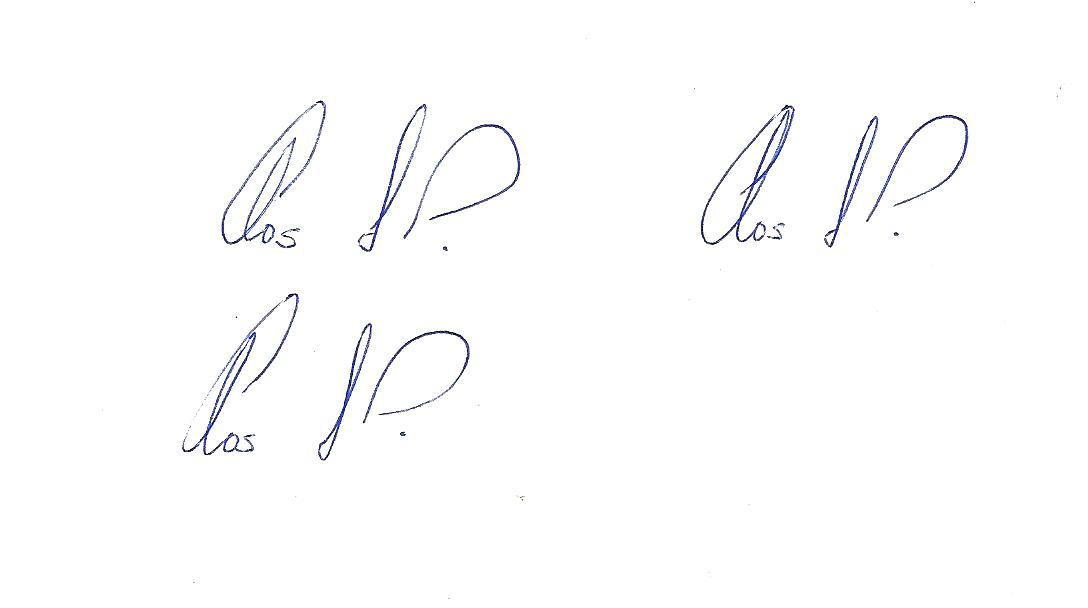 Clos JP. Clos JP.
Clos JP.